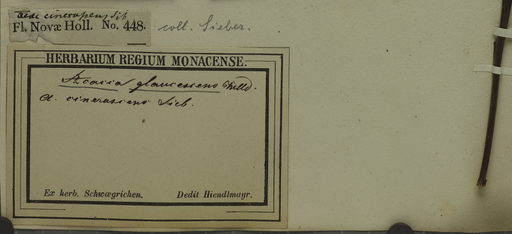 cinerascens Sib
Fl. Novæ Holl. No. 448.
coll. Sieber.
HERBARIUM REGIUM MONACENSE.
Acacia glaucescens Willd.
A. cinerascens Sieb.
Ex herb. Schwægrichen. Dedit Hiendlmayr.